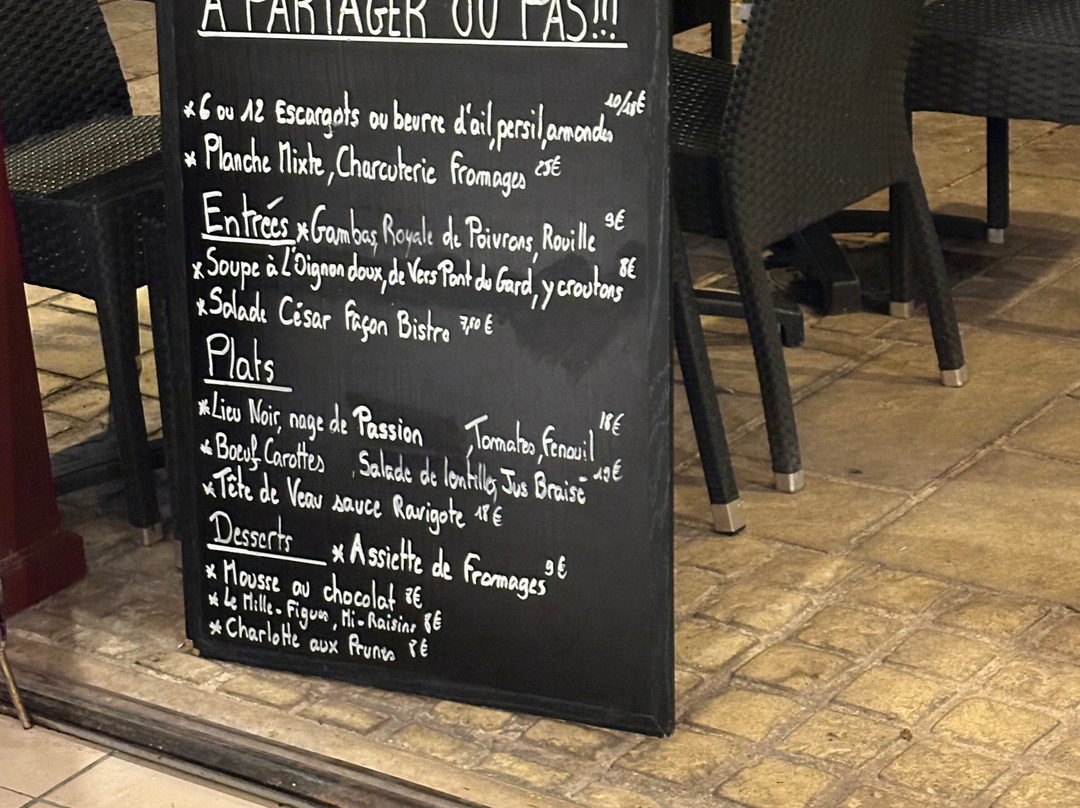 A PARTAGER OU PAS!!!
* 6 ou 12 Escargots au beurre d'ail, persil, amandes 10/18€
* Planche Mixte, Charcuterie Fromages 25€
Entrées * Gambas, Royale de Poivrons, Rouille 9€
* Soupe à L'Oignon doux, de Vers Pont du Gard, y croutons 8€
* Salade César façon Bistro 7,50€
Plats
* Lieu Noir, nage de Passion Tomates, Fenouil 18€
* Boeuf Carottes Salade de lentilles, Jus Braisé 19€
* Tête de Veau sauce Ravigote 18€
Desserts * Assiette de Fromages 9€
* Mousse au chocolat 8€
* Le Mille-Figues, Mi-Raisins 8€
* Charlotte aux Prunes 8€